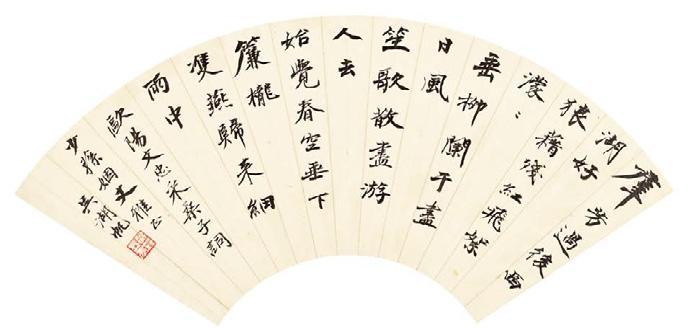 羣芳過後西
湖好
狼藉殘紅飛絮
濛〻
垂柳闌干盡
日風
笙歌散盡游
人去
始覺春空垂下
簾櫳
雙燕歸來細
雨中
歐陽文忠采桑子詞
少蓀姻丈雅正
吳湖帆